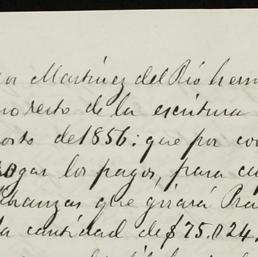 or Martínez del Río herm
resto de la escritura
osto de 1856: que por co
ogar los pagos, para cu
branzas que girará Pra
la cantidad de $75.024.